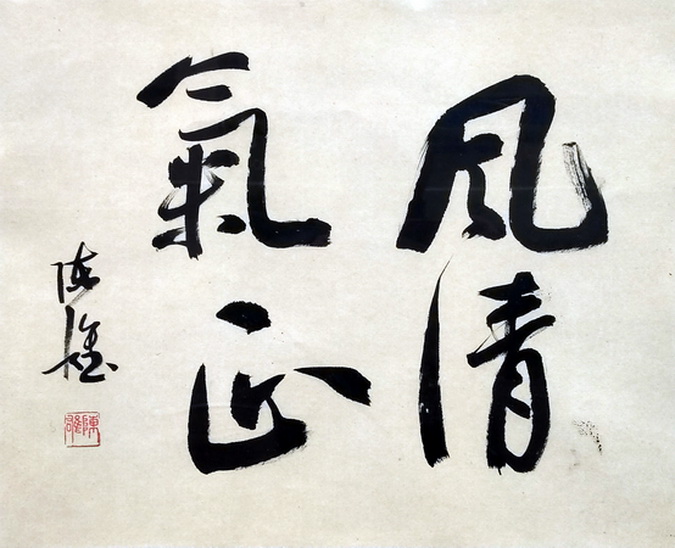 風清
氣正